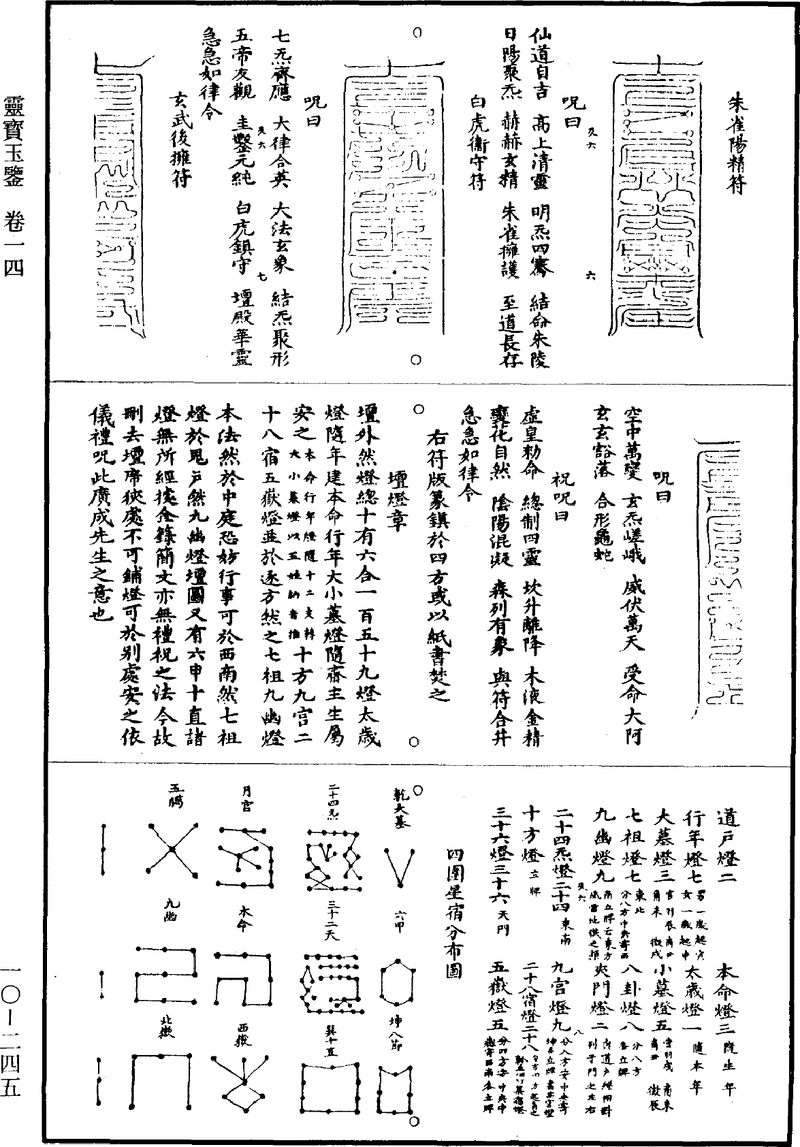 靈寶玉鑒 卷一四
一〇—二四五
朱雀陽精符
呪曰
仙道自吉 高上清靈 明炁四騫 結命朱陵
日陽聚炁 赫赫玄精 朱雀擁護 至道長存
白虎衛守符
呪曰
七炁齊應 大律合英 大法玄象 結炁聚形
五帝友觀 圭鑿元純 白虎鎮守 壇殿華靈
急急如律令
玄武後擁符
呪曰
空中萬變 玄炁嵯峨 威伏萬天 受命大阿
玄玄豁落 合形龜蛇
祝呪曰
虛皇勑命 總制四靈 坎升離降 木液金精
變化自然 陰陽混凝 森列有象 與符合幷
急急如律令
右符版篆鎮於四方或以紙書焚之
壇燈章
壇外然燈總十有六合一百五十九燈太歲
燈隨年建本命行年大小墓燈隨齋主生屬
安之本命行年燈隨十二支轉大小墓燈以五姓納音推十方九宮二
十八宿五嶽燈並於逐方然之七祖九幽燈
本法然於中庭恐妨行事可於西南然七祖
燈於鬼戶然九幽燈壇圖又有六甲十直諸
燈無所經據金籙簡文亦無禮祝之法今故
刪去壇席狹處不可鋪燈可於別處安之依
儀禮呪此廣成先生之意也
道戶燈二 本命燈三隨生年
行年燈七男一歲起寅女一歲起申 太歲燈一隨本年
大墓燈三 小墓燈五
七祖燈七東北 八卦燈八分八方各立牌
九幽燈九 夾門燈二
二十四炁燈二十四東南 九宮燈九
十方燈立牌 二十八宿燈二十八
三十六燈三十六天門 五嶽燈五
四圍星宿分布圖
乾大墓 六甲 坤八節
二十四炁 三十二天 巽十直
月宮 本命 西嶽
五腑 九幽 北嶽